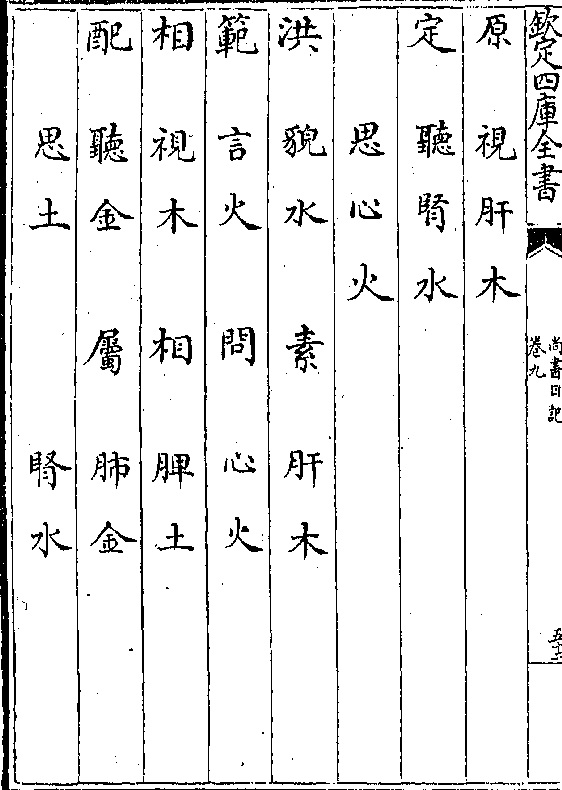 欽定四庫全書
尚書日記
卷九
原 視肝木
定 聽腎水
思心火
洪 貌水 素 肝木
範 言火 問 心火
相 視木 相 脾土
配 聽金 屬 肺金
思土 腎水